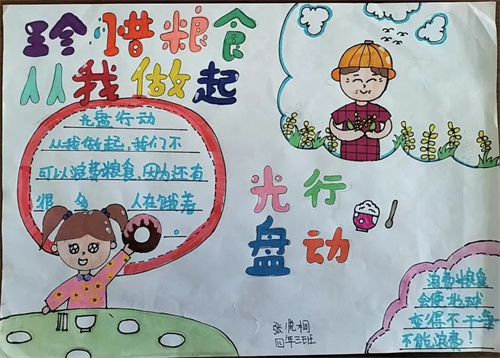 珍惜粮食
从我做起
光盘行动
从我做起,我们不
可以浪费粮食,因为还有
很多人在饿着
。
光行
盘动
浪费粮食
会使地球
变得不干净
不能浪费!
张虎桐
四年三班